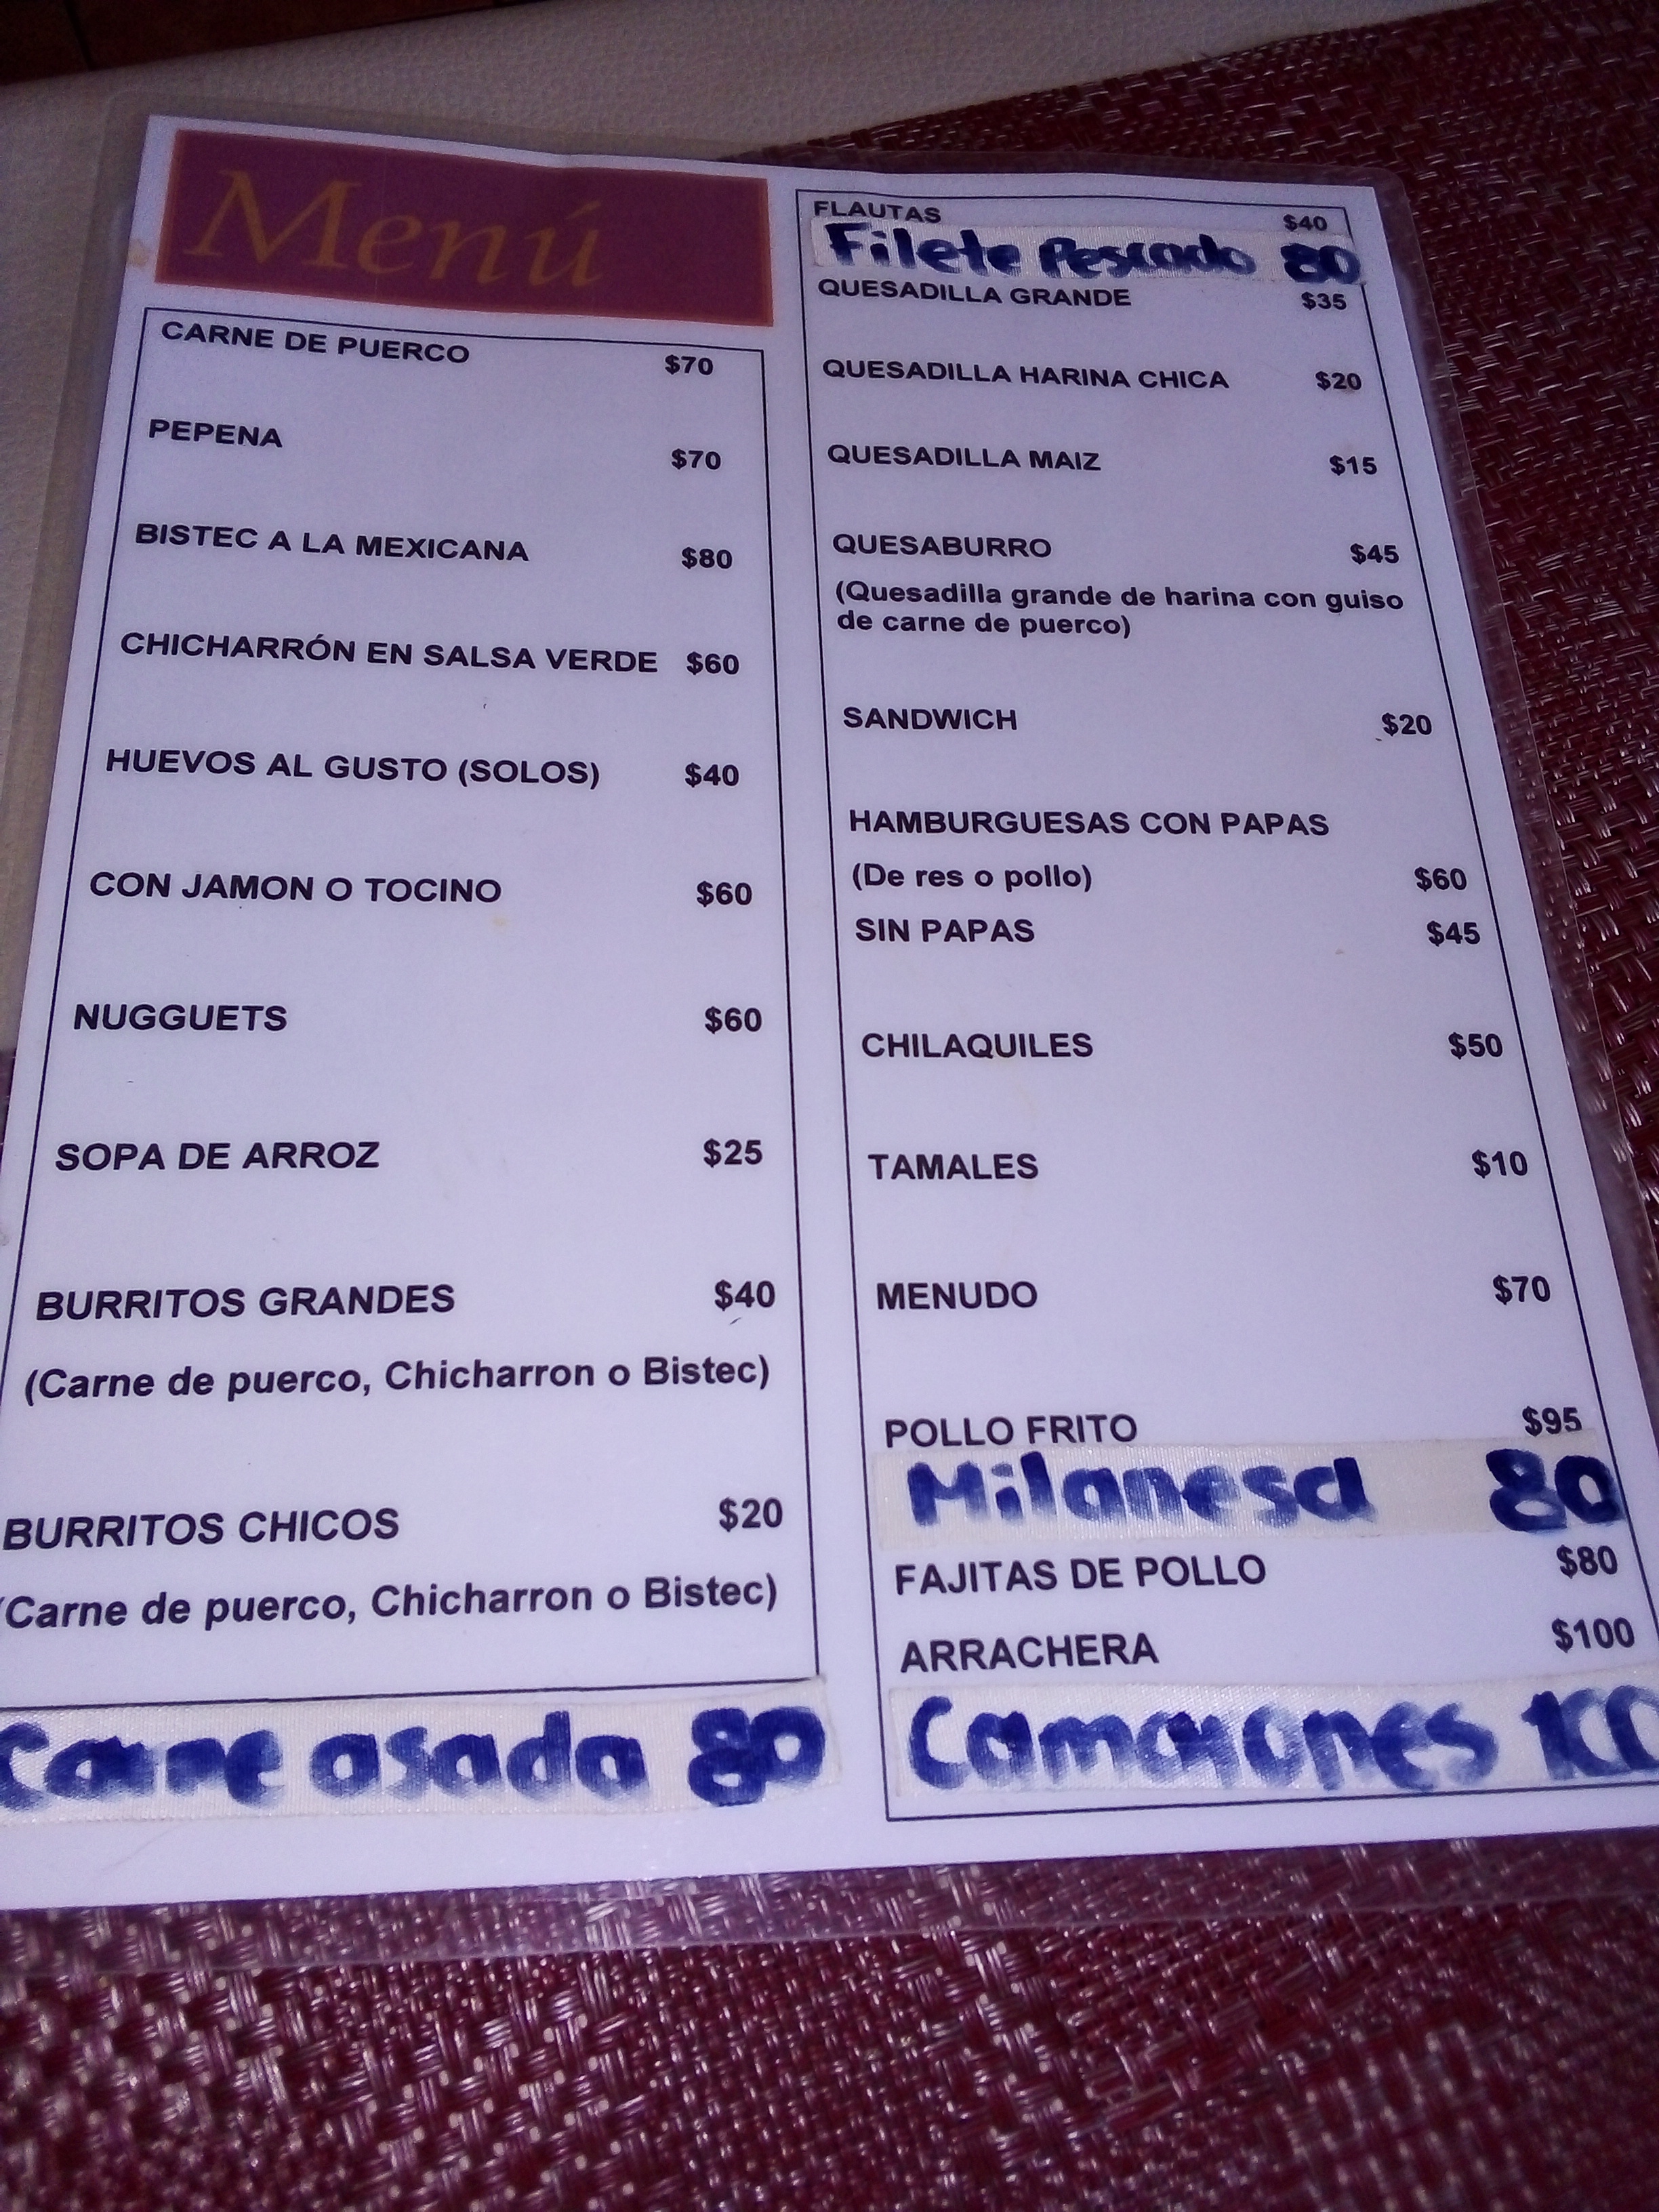 Menú
CARNE DE PUERCO $70
PEPENA $70
BISTEC A LA MEXICANA $80
CHICHARRÓN EN SALSA VERDE $60
HUEVOS AL GUSTO (SOLOS) $40
CON JAMON O TOCINO $60
NUGGUETS $60
SOPA DE ARROZ $25
BURRITOS GRANDES $40
(Carne de puerco, Chicharron o Bistec)
BURRITOS CHICOS $20
(Carne de puerco, Chicharron o Bistec)
Carne asada 80
FLAUTAS $40
Filete Pescado 80
QUESADILLA GRANDE $35
QUESADILLA HARINA CHICA $20
QUESADILLA MAIZ $15
QUESABURRO $45
(Quesadilla grande de harina con guiso
de carne de puerco)
SANDWICH $20
HAMBURGUESAS CON PAPAS
(De res o pollo) $60
SIN PAPAS $45
CHILAQUILES $50
TAMALES $10
MENUDO $70
POLLO FRITO $95
Milanesa 80
FAJITAS DE POLLO $80
ARRACHERA $100
Camarones 100